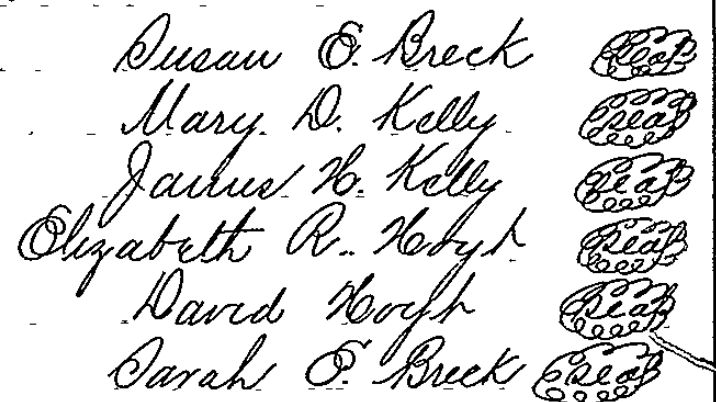 Susan E. Breck Seal
Mary D. Kelly Seal
James H. Kelly Seal
Elizabeth R. Hoyt Seal
David Hoyt Seal
Sarah E. Breck Seal